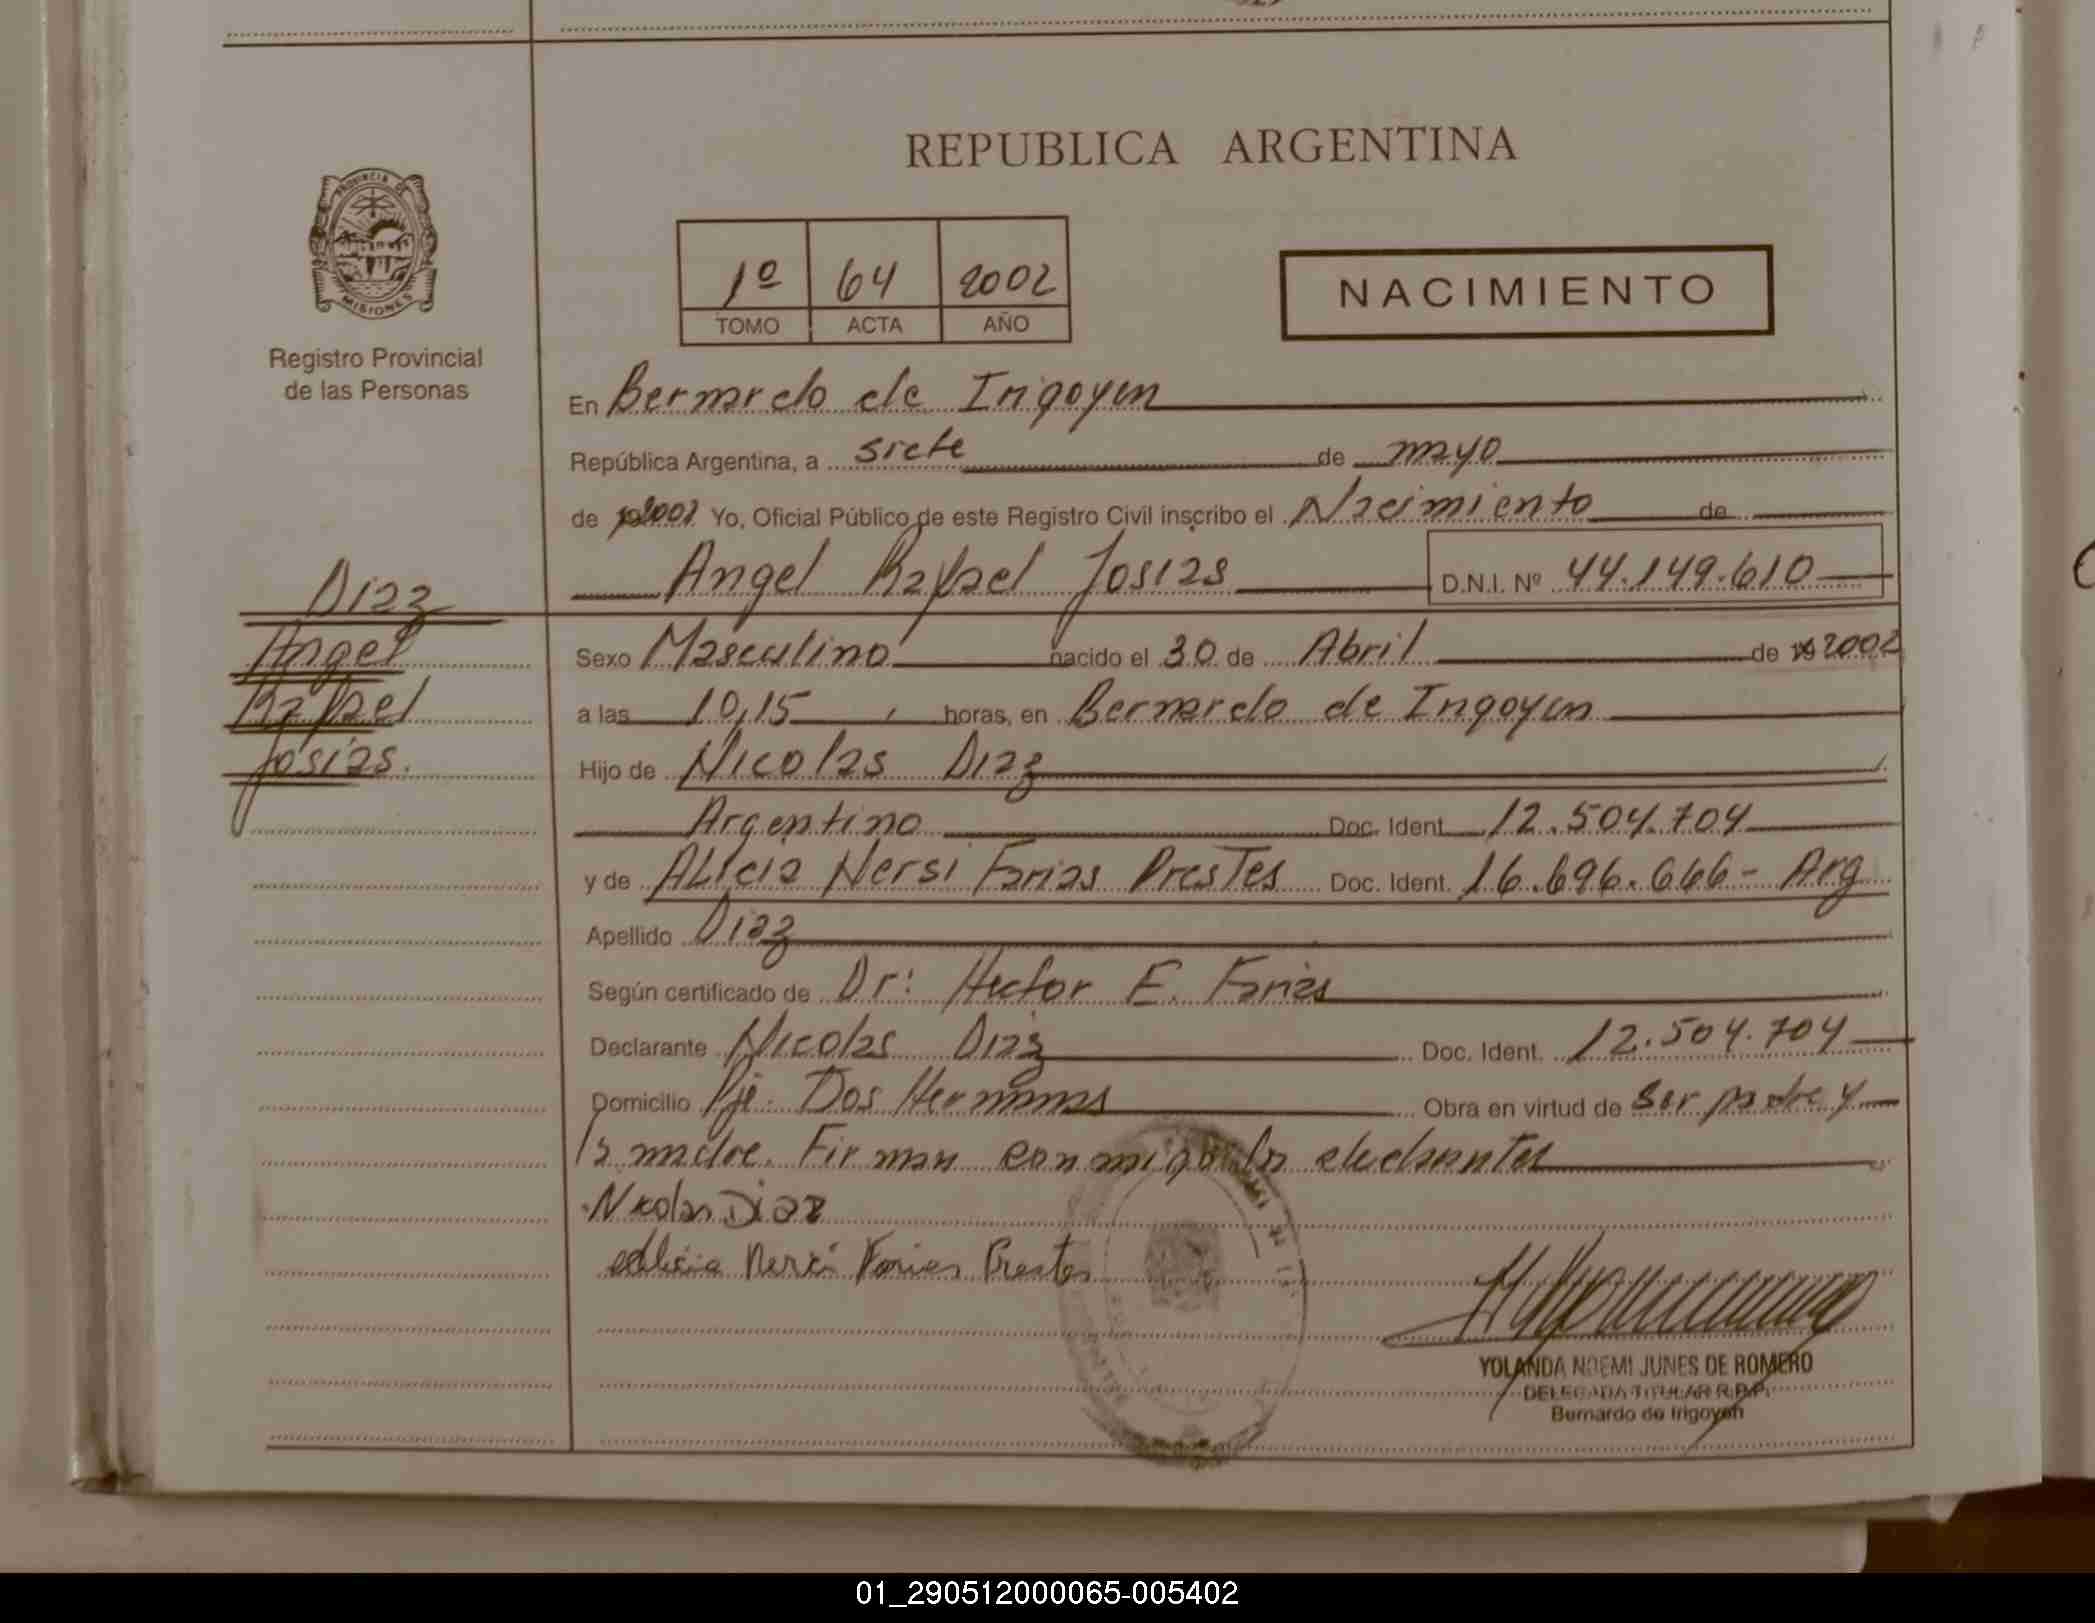 REPUBLICA ARGENTINA
PROVINCIA DE
MISIONES
Registro Provincial
de las Personas
1º 64 2002
TOMO ACTA AÑO
NACIMIENTO
En Bernardo de Irigoyen
República Argentina, a siete de mayo
de 2002 Yo, Oficial Público de este Registro Civil inscribo el Nacimiento de
Angel Rafael Josias D.N.I. Nº 44.149.610
Diaz
Angel
Rafael
Josias.
Sexo Masculino nacido el 30 de Abril de 19 2002
a las 10,15 horas, en Bernardo de Irigoyen
Hijo de Nicolas Diaz
Argentino Doc. Ident. 12.504.704
y de Alicia Nersi Farias Prestes Doc. Ident. 16.696.666 - Arg
Apellido Diaz
Según certificado de Dr: Hector E. Farias
Declarante Nicolas Diaz Doc. Ident. 12.504.704
Domicilio Pje. Dos Hermanas Obra en virtud de ser padre y
la madre. Firman conmigo los declarantes
Nicolas Diaz
Alicia Nersi Farias Prestes
YOLANDA NOEMI JUNES DE ROMERO
DELEGADA TITULAR R.P.P.
Bernardo de Irigoyen
01_290512000065-005402